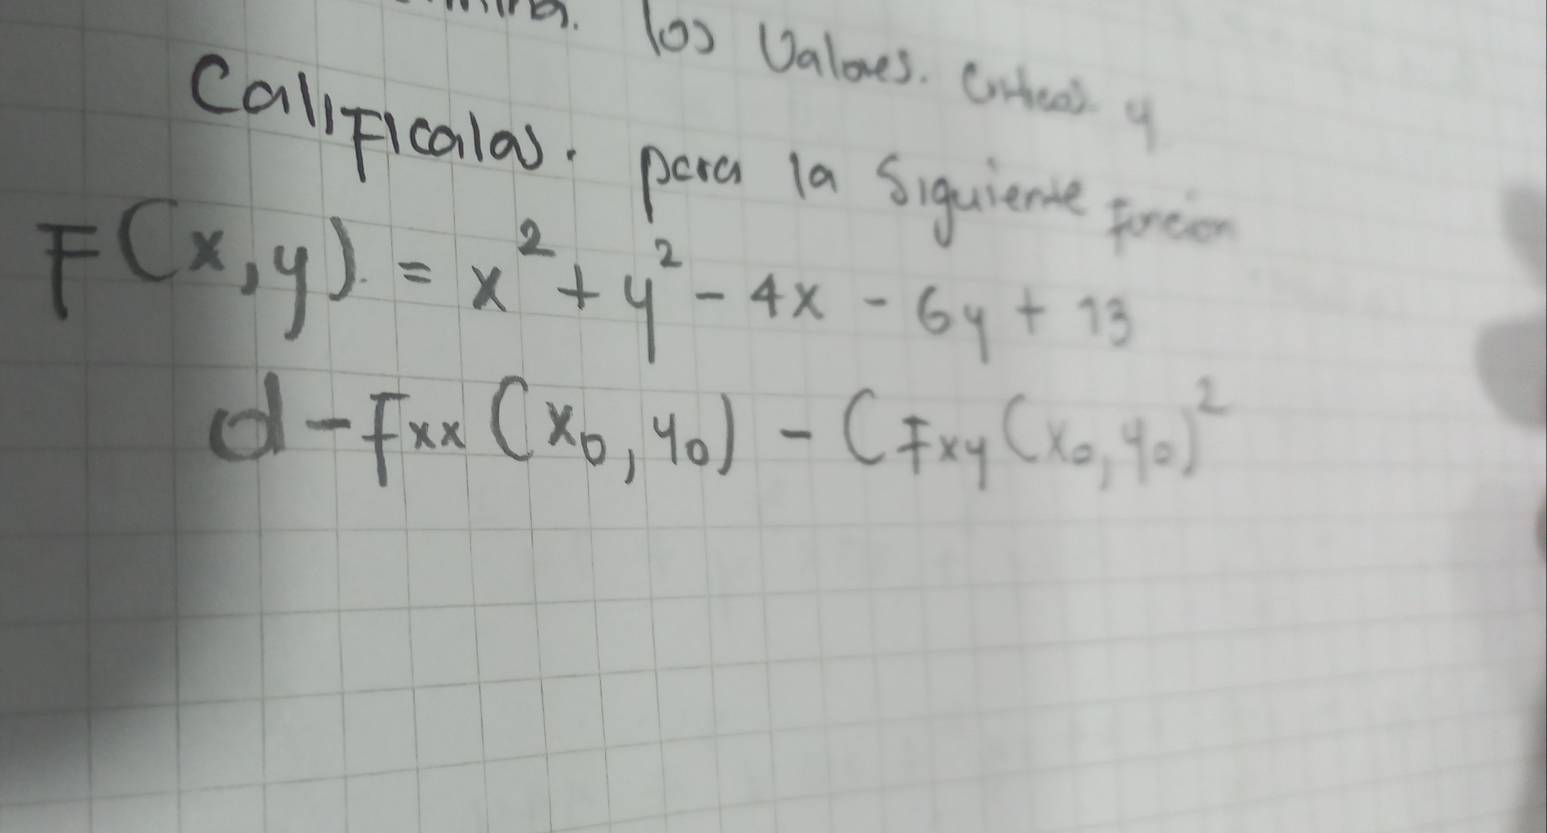 los Valores. Criticos y
Calificalas. para la Siguiente Funcion
F(x,y) = x² + y² - 4x - 6y + 13
d - Fxx (x₀, y₀) - (Fxy (x₀, y₀)²